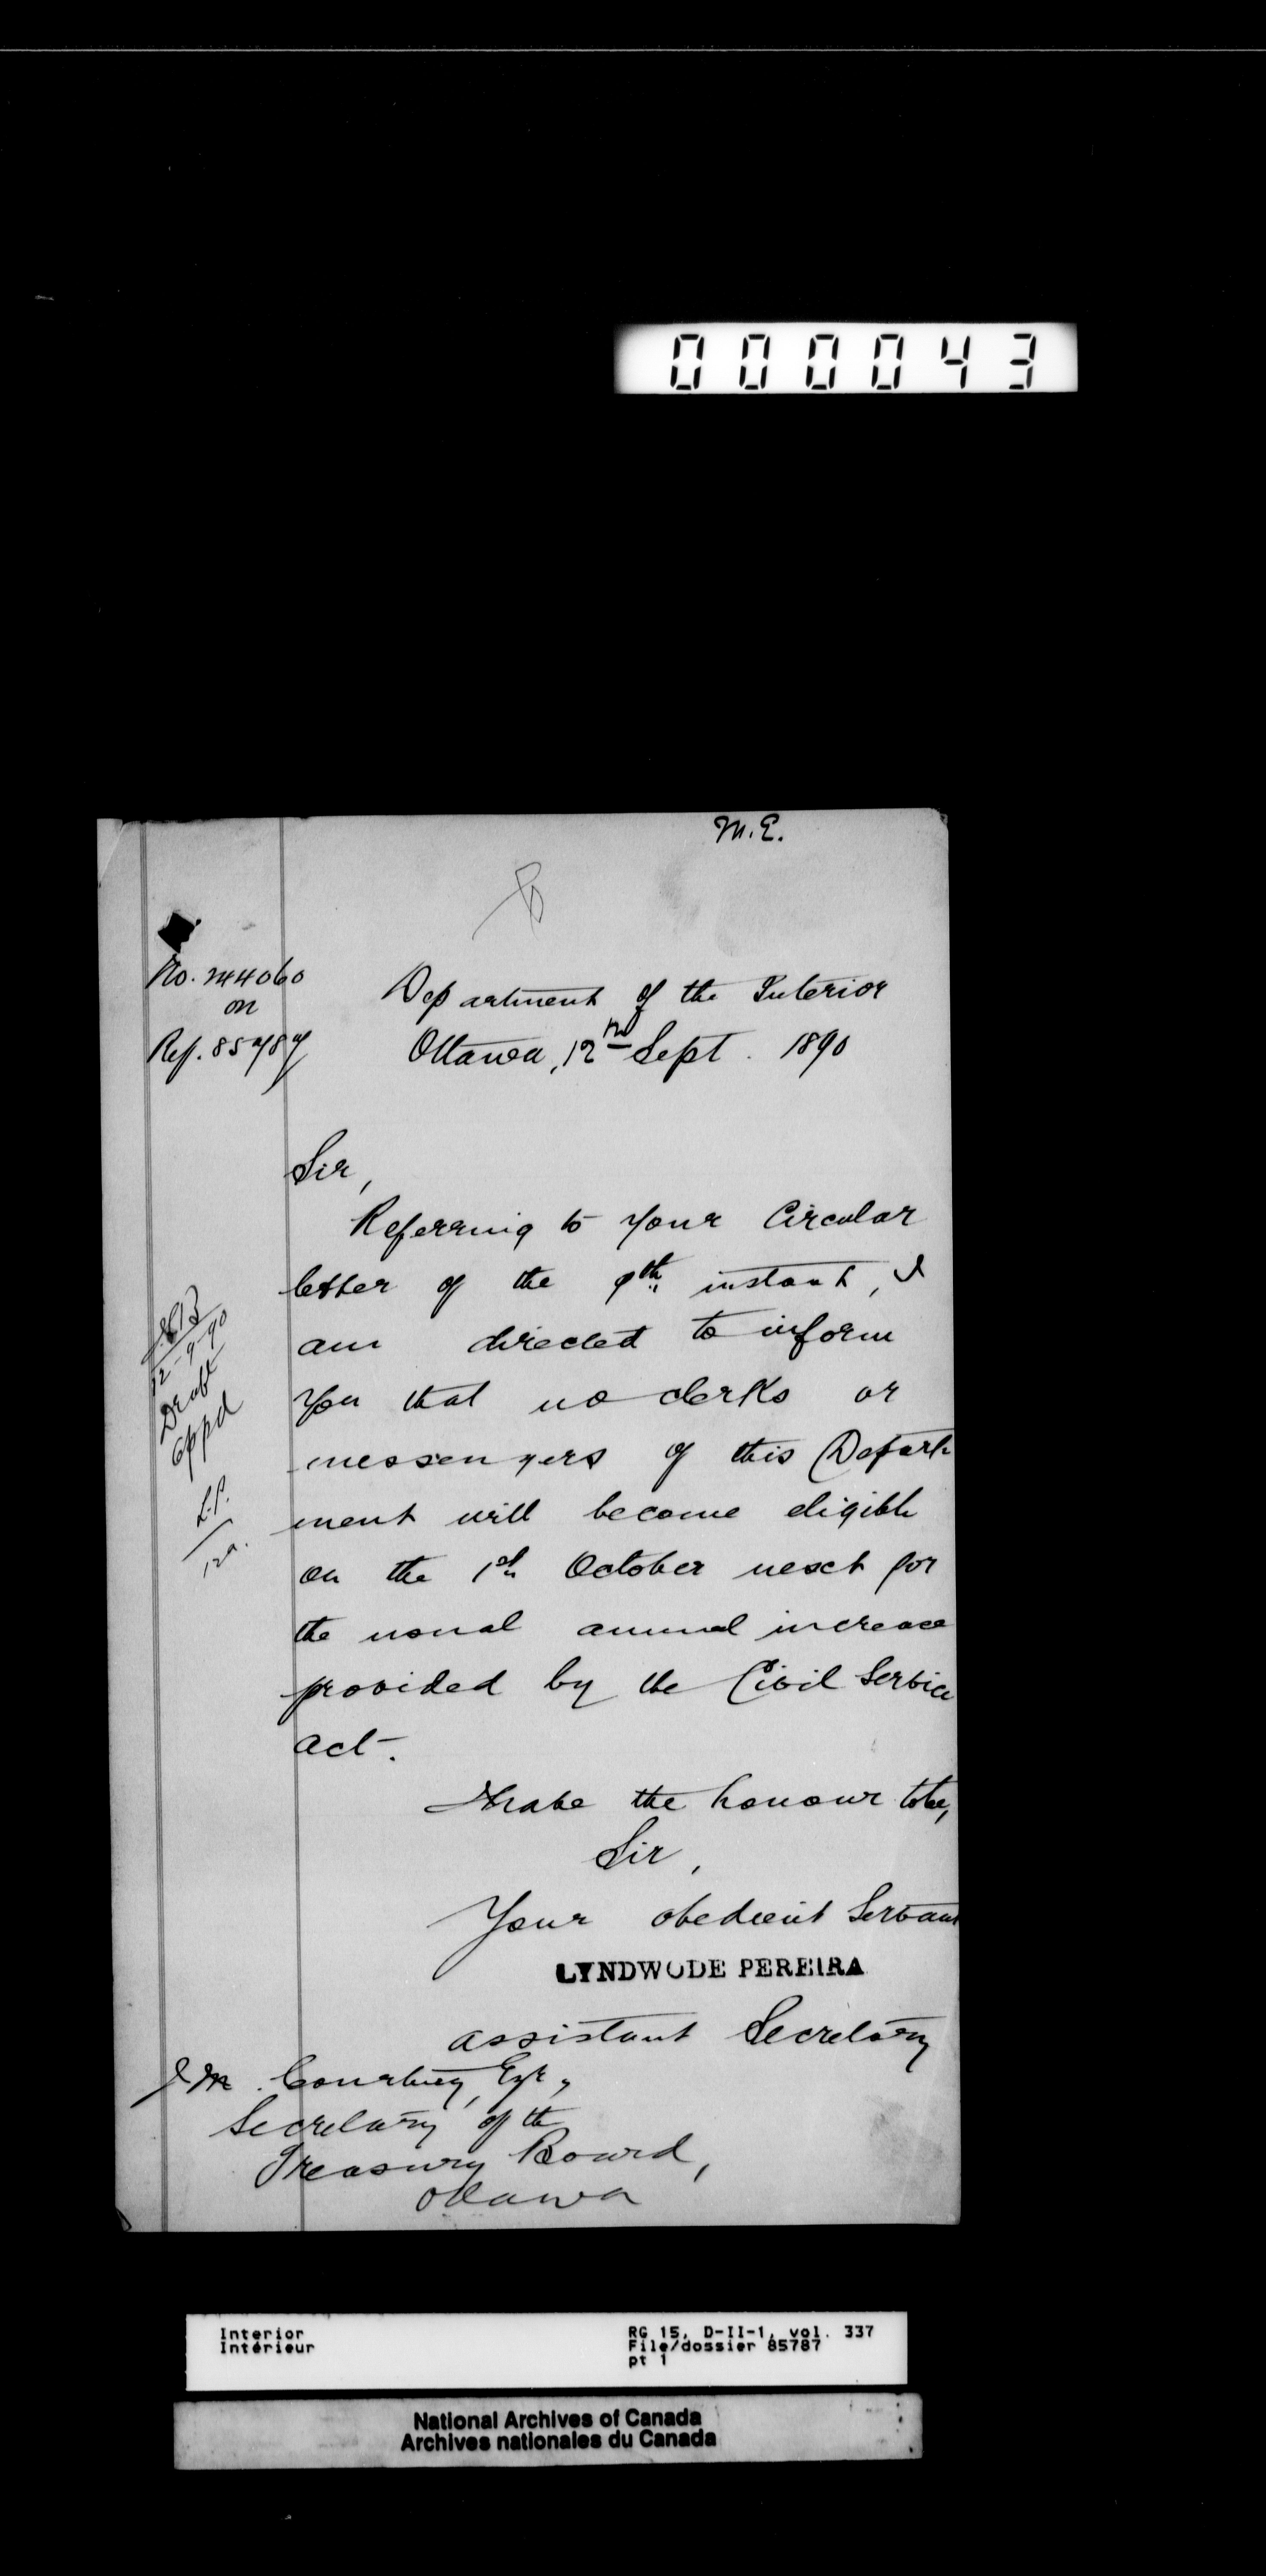 000043
M.E.
No. 244060
on
Ref. 85787
Department of the Interior
Ottawa, 12th Sept. 1890
Sir,
Referring to your Circular
letter of the 9th instant, I
am directed to inform
you that no clerks or
messengers of this Depart
ment will become eligible
on the 1st October next for
the usual annual increase
provided by the Civil Service
act.
I have the honour to be,
Sir,
Your obedient Servant
LYNDWODE PEREIRA
assistant Secretary
12-9-90
Draft
appd
L.P.
J M Courtney, Esqr,
Secretary of the
Treasury Board,
Ottawa
Interior
Intérieur
RG 15, D-II-1, vol. 337
File/dossier 85787
pt 1
National Archives of Canada
Archives nationales du Canada